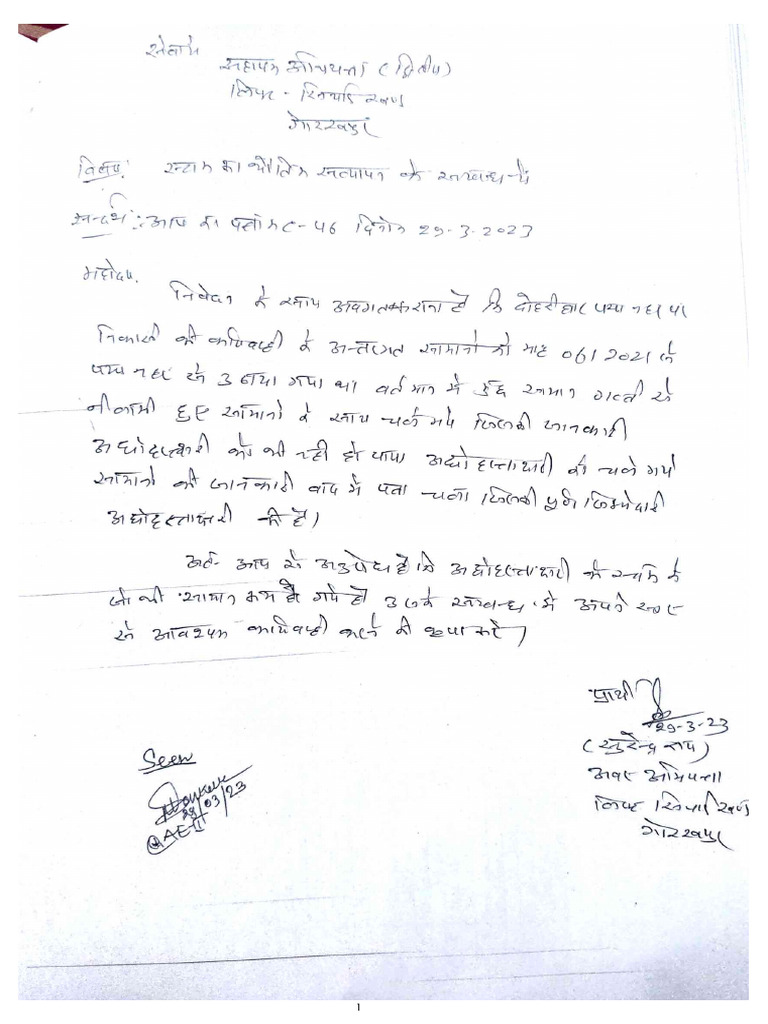 सेवामें
सहायक अभियन्ता (द्वितीय)
लिफ्ट सिंचाई खण्ड
गोरखपुर
विषय: स्टाक का भौतिक सत्यापन के सम्बन्ध में
सन्दर्भ: आप का पत्रांक C-46 दिनांक 29-3-2023
महोदय,
निवेदन के साथ अवगत कराना है कि दोहरीघाट पम्प नहर पर
निकासी की कार्यवाही के अन्तर्गत सामानो को माह 06/2021 में
पम्प नहर से उठाया गया था। वर्तमान में कुछ सामान गलती से
नीलामी हुए सामानो के साथ चले गये जिसकी जानकारी
अधोहस्ताक्षरी को भी नही हो पाया अधोहस्ताक्षरी को चले गये
सामानो की जानकारी बाद में पता चला जिसकी पूर्ण जिम्मेदारी
अधोहस्ताक्षरी की है।
अतः आप से अनुरोध है कि अधोहस्ताक्षरी के स्टाक में
जो भी सामान कम हो गये हो उनके सम्बन्ध में अपने स्तर
से आवश्यक कार्यवाही करने की कृपा करे।
प्रार्थी
29-3-23
(सुरेन्द्र राय)
अवर अभियन्ता
लिफ्ट सिंचाई खण्ड
गोरखपुर
Seen
29/03/23
AE-II
1